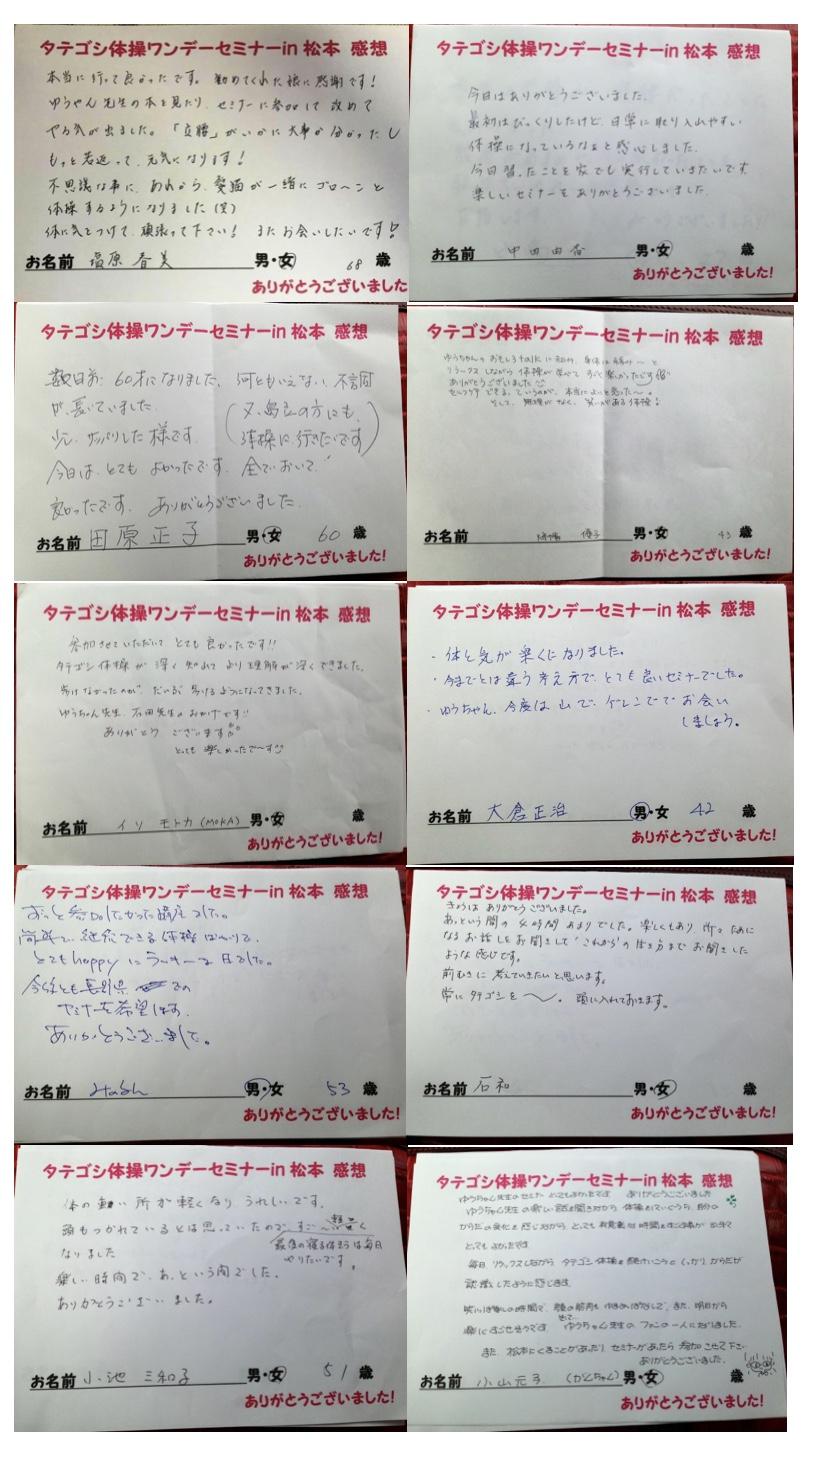 タテゴシ体操ワンデーセミナーin 松本 感想
本当に行って良かったです。勧めてくれた娘に感謝です!
ゆうちゃん先生の本を見たり、セミナーに参加して改めて
やる気が出ました。「立腰」がいかに大事か分かったし
もっと若返って、元気になります!
不思議な事に、あれから、愛猫が一緒にゴローンと
体操するようになりました(笑)
体に気をつけて、頑張って下さい! またお会いしたいです!
お名前 塩原 春美 男・女 68 歳
ありがとうございました
タテゴシ体操ワンデーセミナーin 松本 感想
今日はありがとうございました。
最初はびっくりしたけど、日常に取り入れやすい
体操になっているなぁと感心しました。
今日習ったことを家でも実行していきたいです。
楽しいセミナーをありがとうございました。
お名前 中田由香 男・女 歳
ありがとうございました!
タテゴシ体操ワンデーセミナーin 松本 感想
数日前、60才になりました。何ともいえない不調
が、長いていました。
少し、サッパリした様です。
(又、島々の方にも、
体操に行きたいです)
今日は、とても よかったです。全ておいて、
良かったです。ありがとうございました。
お名前 田原正子 男・女 60 歳
ありがとうございました!
タテゴシ体操ワンデーセミナーin 松本 感想
ゆうちゃんのおもしろtalkに
リラックスしながら 体操が学べて すごく楽しかったです
ありがとうございました
セルフケアできる、というのが、本当によいと思った〜。
そして、無理がなく、笑いがある体操!
お名前 優子 男・女 43 歳
ありがとうございました!
タテゴシ体操ワンデーセミナーin 松本 感想
参加させていただいて とても良かったです!!
タテゴシ体操が 深く知れて より理解が深くできました。
歩けなかったのが、だいぶ歩けるようになってきました。
ゆうちゃん先生、石田先生のおかげです!!
ありがとう ございます
とっても楽しかったで〜す
お名前 イソ モトカ (MOKA) 男・女 歳
ありがとうございました!
タテゴシ体操ワンデーセミナーin 松本 感想
・体と気が楽くになりました。
・今までとは違う考え方で、とても良いセミナーでした。
・ゆうちゃん、今度は山で、ゲレンデでお会い
しましょう。
お名前 大倉正治 男・女 42 歳
ありがとうございました!
タテゴシ体操ワンデーセミナーin 松本 感想
ずっと参加したかった講座でした。
簡単で、継続できる体操ばかりで、
とてもhappyにラッキーな日でした。
今後とも長野県での
セミナーを希望します。
ありがとうございました。
お名前 男・女 53 歳
ありがとうございました!
タテゴシ体操ワンデーセミナーin 松本 感想
きょうは ありがとうございました。
あっという間の 4時間あまりでした。楽しくもあり 所々ために
なるお話しをお聞きして"これから"の生き方までお聞きした
ような感じです。
前むきに 考えていきたいと思います。
常に タテゴシを〜。頭に入れておきます。
お名前 石和 男・女 歳
ありがとうございました!
タテゴシ体操ワンデーセミナーin 松本 感想
体の重い所が軽くなり うれしいです。
頭もつかれているとは思っていたのですご〜く軽く
なりました
最後の寝る体操は毎日
やりたいです。
楽しい時間で、あっという間でした。
ありがとうございました。
お名前 小池 三和子 男・女 51 歳
ありがとうございました!
タテゴシ体操ワンデーセミナーin 松本 感想
ゆうちゃん先生のセミナー とてもよかったです ありがとうございました
ゆうちゃん先生の楽しい話を聞きながら 体操をしていくうち、自分の
からだの変化を感じながら、とっても有意義な時間をすごす事が出来て
とってもよかったです
毎日 リラックスしながら タテゴシ体操を続けていこうと しっかり からだが
認識したように感じます
また、明日から
楽にすごせそうです ゆうちゃん先生の ファンの一人になりました。
また 松本にくることがあったり セミナーがあったら 参加させて下さい
ありがとうございました。
お名前 小山元子 (がんちゃん) 男・女 歳
ありがとうございました!